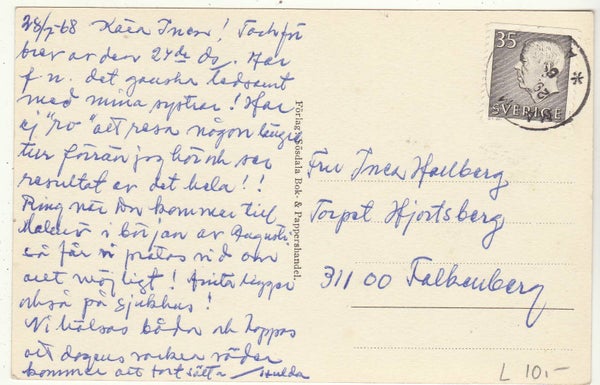 28/7-68 Kära Inea! Tack för
brev av den 24de ds. Har
f n. det ganska ledsamt
med mina systrar! Har
ej "ro" att resa någon längre
tur förrän jag hör och ser
resultat av det hela!!
Ring när Don kommer till
i början av Augusti
så får vi pratas vid om
allt möjligt! Anita
också på sjukhus!
Vi hälsas båda och hoppas
att dagens vackra väder
kommer att fortsätta / Hulda
Förlag: Sösdala Bok- & Pappershandel.
35
SVERIGE
Fru Inea Hallberg
Torpet Hjortsberg
311 00 Falkenberg
L 10:-